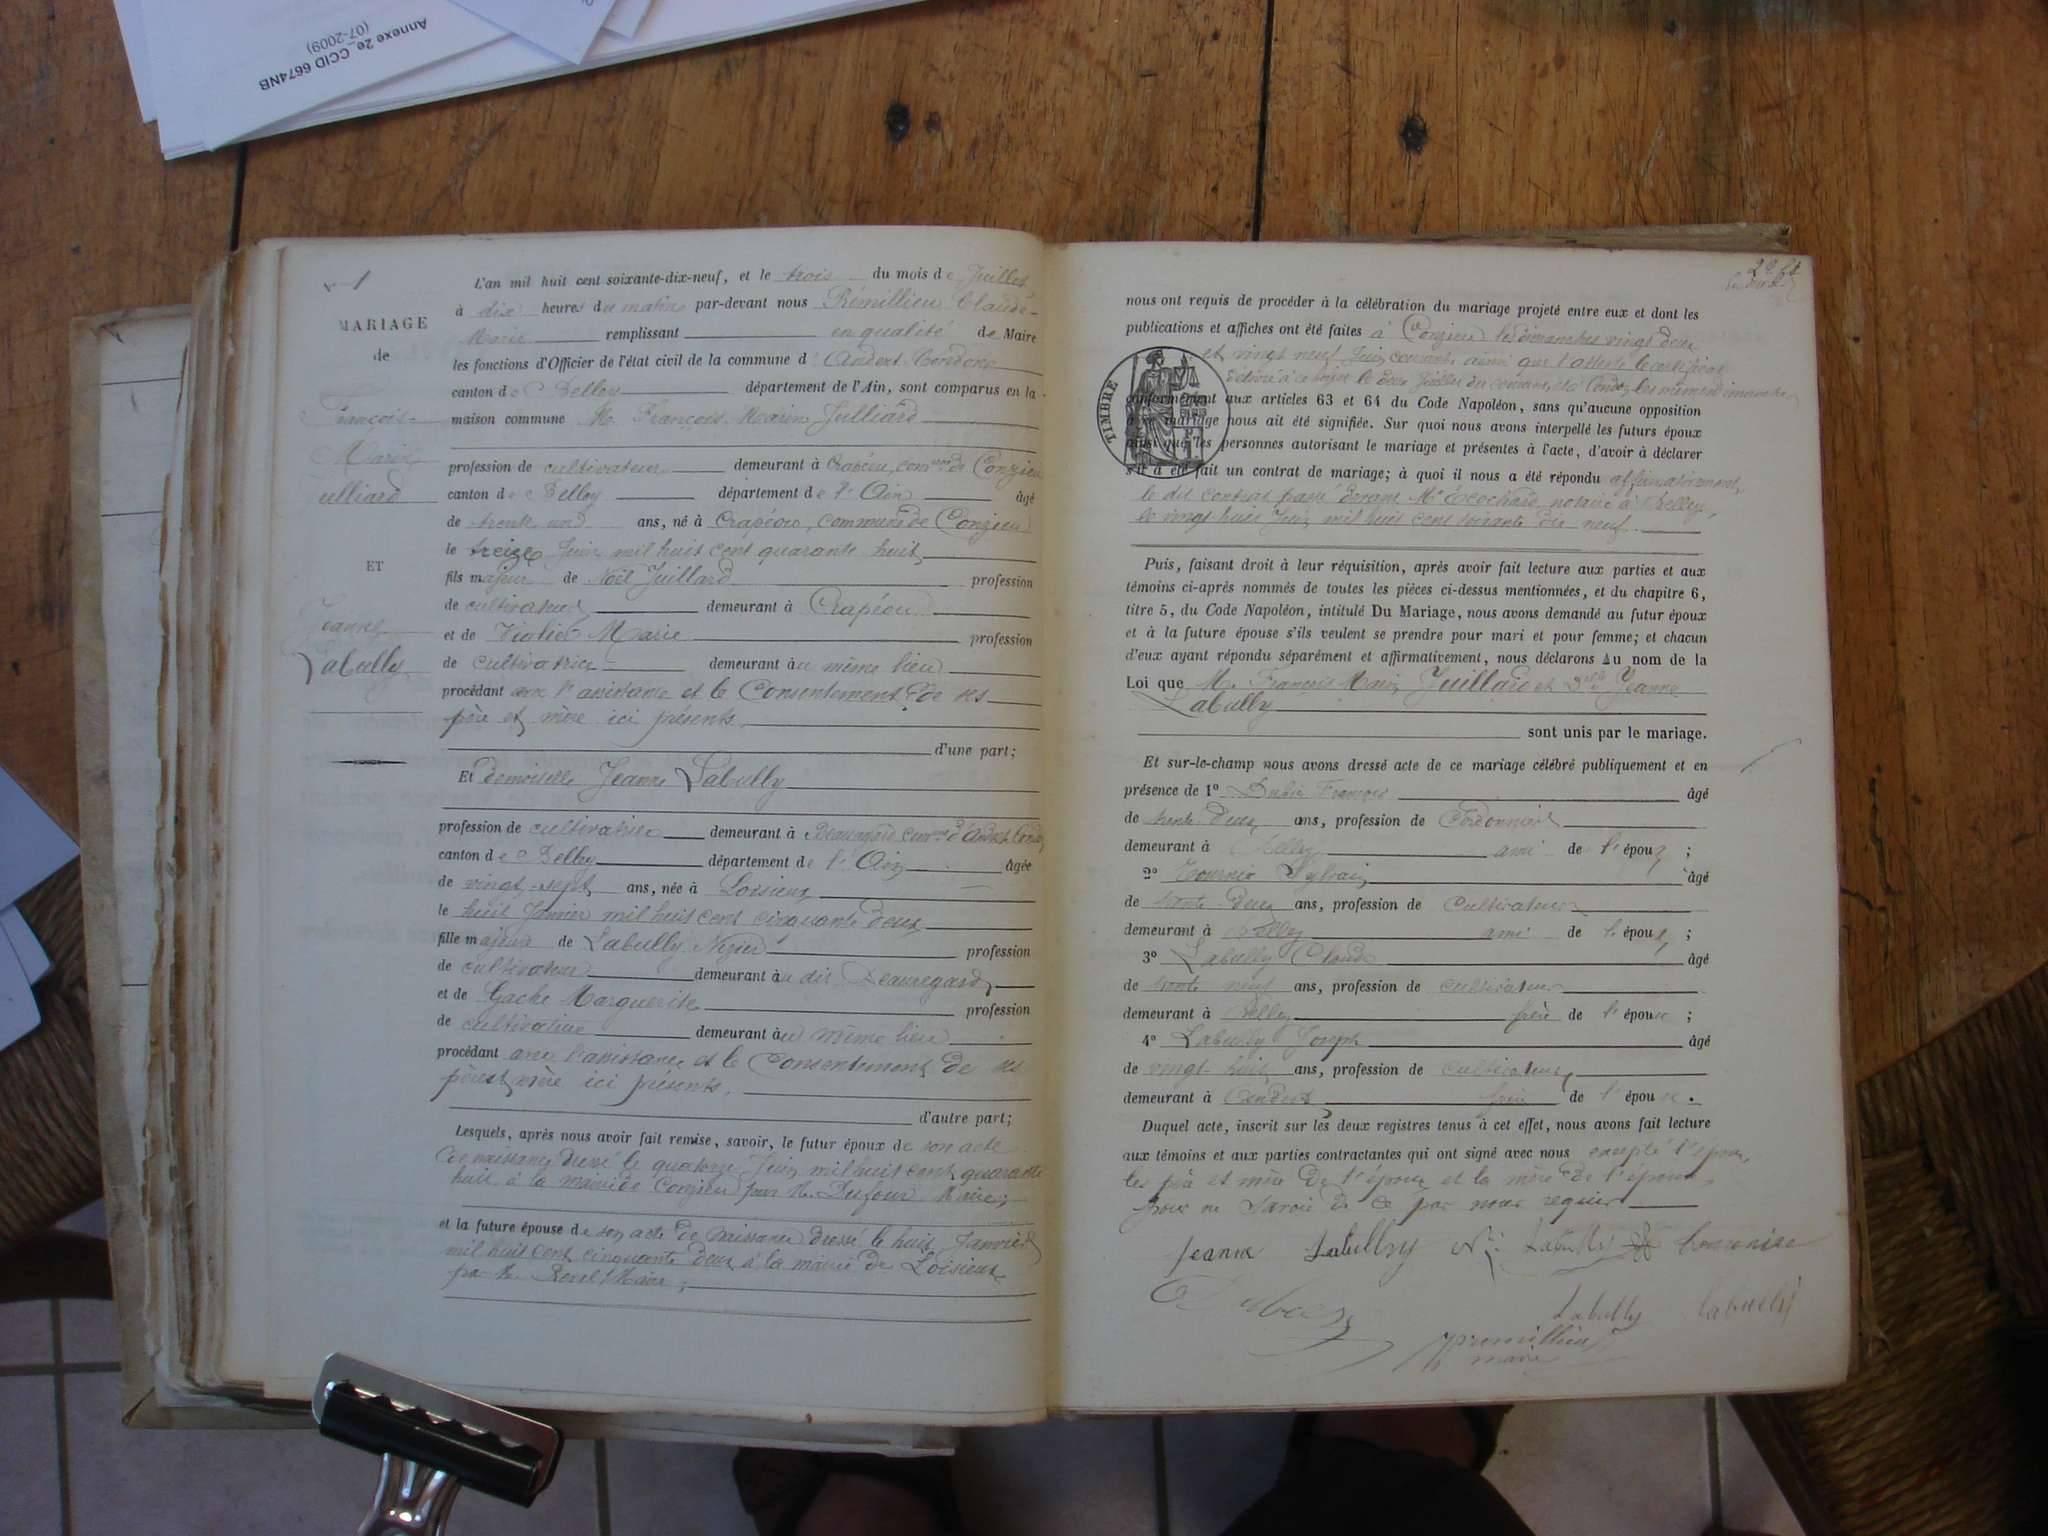 Annexe 2e_CCID 6674NB
(07-2009)
N° 1
MARIAGE
de
François
Marin
Julliard
ET
Jeanne
Labully
L'an mil huit cent soixante-dix-neuf, et le trois du mois de Juillet
à dix heures du matin par-devant nous Rémillieu Claude-
Marie remplissant en qualité de Maire
les fonctions d'Officier de l'état civil de la commune d'Andert-Condon
canton de Belley département de l'Ain, sont comparus en la
maison commune M. François Marin Julliard
profession de cultivateur demeurant à Crapéou, comune de Conzieu
canton de Belley département de l'Ain âgé
de trente un ans, né à Crapéou, commune de Conzieu
le treize Juin mil huit cent quarante huit
fils majeur de Noël Juillard profession
de cultivateur demeurant à Crapéou
et de Marie profession
de cultivatrice demeurant au même lieu
procédant avec l'assistance et le Consentement de ses
père et mère ici présents.
d'une part;
Et demoiselle Jeanne Labully
profession de cultivatrice demeurant à Beauregard comune d'Andert-Condon
canton de Belley département de l'Ain âgée
de vingt-sept ans, née à Loisieux
le huit Janvier mil huit cent cinquante deux
fille majeure de Labully profession
de cultivateur demeurant au dit Beauregard
et de Gache Marguerite profession
de cultivatrice demeurant au même lieu
procédant avec l'assistance et le Consentement de ses
père et mère ici présents.
d'autre part;
Lesquels, après nous avoir fait remise, savoir, le futur époux de son acte
de naissance dressé le quatorze Juin mil huit cent quarante
huit à la mairie de Conzieu par M. Dufour Maire;
et la future épouse de son acte de naissance dressé le huit Janvier
mil huit cent cinquante deux à la mairie de Loisieux
par M. Revel Maire;
nous ont requis de procéder à la célébration du mariage projeté entre eux et dont les
publications et affiches ont été faites à Conzieu les dimanches vingt deux
et vingt neuf Juin courant ainsi que l'atteste le certificat
délivré à ce sujet le deux Juillet du courant, et à Condon les mêmes dimanches
TIMBRE
conformément aux articles 63 et 64 du Code Napoléon, sans qu'aucune opposition
à ce mariage nous ait été signifiée. Sur quoi nous avons interpellé les futurs époux
ainsi que les personnes autorisant le mariage et présentes à l'acte, d'avoir à déclarer
s'il a été fait un contrat de mariage; à quoi il nous a été répondu affirmativement,
le dit contrat passé devant Me Ecochard, notaire à Belley,
le vingt huit Juin mil huit cent soixante dix neuf.
Puis, faisant droit à leur réquisition, après avoir fait lecture aux parties et aux
témoins ci-après nommés de toutes les pièces ci-dessus mentionnées, et du chapitre 6,
titre 5, du Code Napoléon, intitulé Du Mariage, nous avons demandé au futur époux
et à la future épouse s'ils veulent se prendre pour mari et pour femme; et chacun
d'eux ayant répondu séparément et affirmativement, nous déclarons Au nom de la
Loi que M. François Marin Juillard et Delle Jeanne
Labully
sont unis par le mariage.
Et sur-le-champ nous avons dressé acte de ce mariage célébré publiquement et en
présence de 1° François âgé
de trente deux ans, profession de Cordonnier
demeurant à Belley ami de l'époux;
2° Tournier Sylvain âgé
de trente deux ans, profession de Cultivateur
demeurant à Belley ami de l'époux;
3° Labully Claude âgé
de trente neuf ans, profession de cultivateur
demeurant à Belley frère de l'épouse;
4° Labully Joseph âgé
de vingt-huit ans, profession de cultivateur
demeurant à Andert frère de l'épouse.
Duquel acte, inscrit sur les deux registres tenus à cet effet, nous avons fait lecture
aux témoins et aux parties contractantes qui ont signé avec nous excepté l'époux,
les père et mère de l'époux et la mère de l'épouse
pour ne savoir de ce par nous requis
Jeanne Labully
Labully Labully
Remillieux
maire